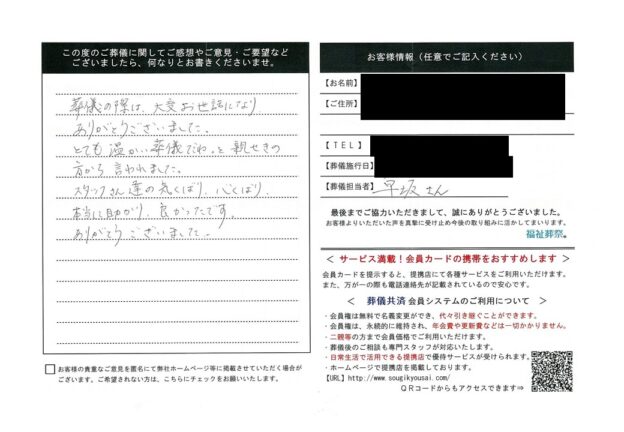 この度のご葬儀に関してご感想やご意見・ご要望など
ございましたら、何なりとお書きくださいませ。
葬儀の際は、大変お世話になり
ありがとうございました。
とても温かい葬儀でね。と親せきの
方から言われました。
スタッフさん達の気くばり、心くばり、
本当に助かり、良かったです。
ありがとうございました。
お客様の貴重なご意見を匿名にて弊社ホームページ等に掲載させていただく場合が
ございます。ご希望されない方は、こちらにチェックをお願いいたします。
お客様情報（任意でご記入ください）
【お名前】
【ご住所】
【ＴＥＬ】
【葬儀施行日】
【葬儀担当者】早坂さん
最後までご協力いただきまして、誠にありがとうございました。
お客様よりいただいた声を真摯に受け止め今後の取り組みに活かしてまいります。
福祉葬祭。
＜ サービス満載！会員カードの携帯をおすすめします ＞
会員カードを提示すると、提携店にて各種サービスをご利用いただけます。
また、万が一の際も電話連絡先が記載されているので安心です。
＜ 葬儀共済 会員システムのご利用について ＞
・会員権は無料で名義変更ができ、代々引き継ぐことができます。
・会員権は、永続的に維持され、年会費や更新費などは一切かかりません。
・二親等の方まで会員価格でご利用いただけます。
・葬儀後のご相談も専門スタッフが対応いたします。
・日常生活で活用できる提携店で優待サービスが受けられます。
・ホームページで提携店を掲載しております。
【URL】http://www.sougikyousai.com/
ＱＲコードからもアクセスできます⇒